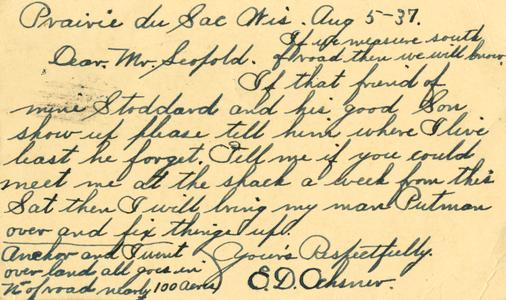 Prairie du Sac Wis. Aug 5-37.
If we measure south
of road then we will know
Dear. Mr. Seofold.
If that friend of
mine Stoddard and his good Son
show up please tell him where I live
least he forget. Tell me if you could
meet me at the shack a week from this
Sat then I will bring my man Putman
over and fix things up.
Yours Respectfully.
E. D. Ochsner.
Anchor and I went
over land all goes in
N. of road nearly 100 Acres